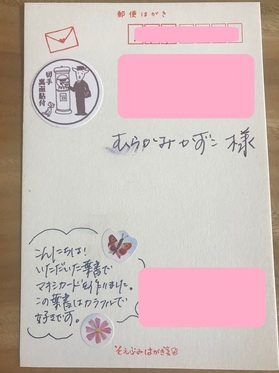 郵便はがき
切手
裏面貼付
むらかみかずこ 様
こんにちは!
いただいた葉書で
マキシカードを作りました。
この葉書はカラフルで
好きです。
そえぶみはがき箋